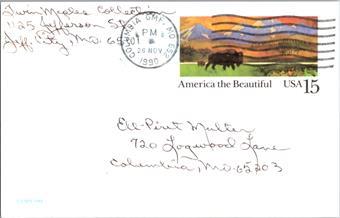 Twin Maples Collection
1125 Jefferson St.
Jeff. City, Mo. 65101
COLUMBIA GMF, MO 652
PM
26 NOV
1990
America the Beautiful USA 15
720 Logwood Lane
Columbia, Mo. 65203